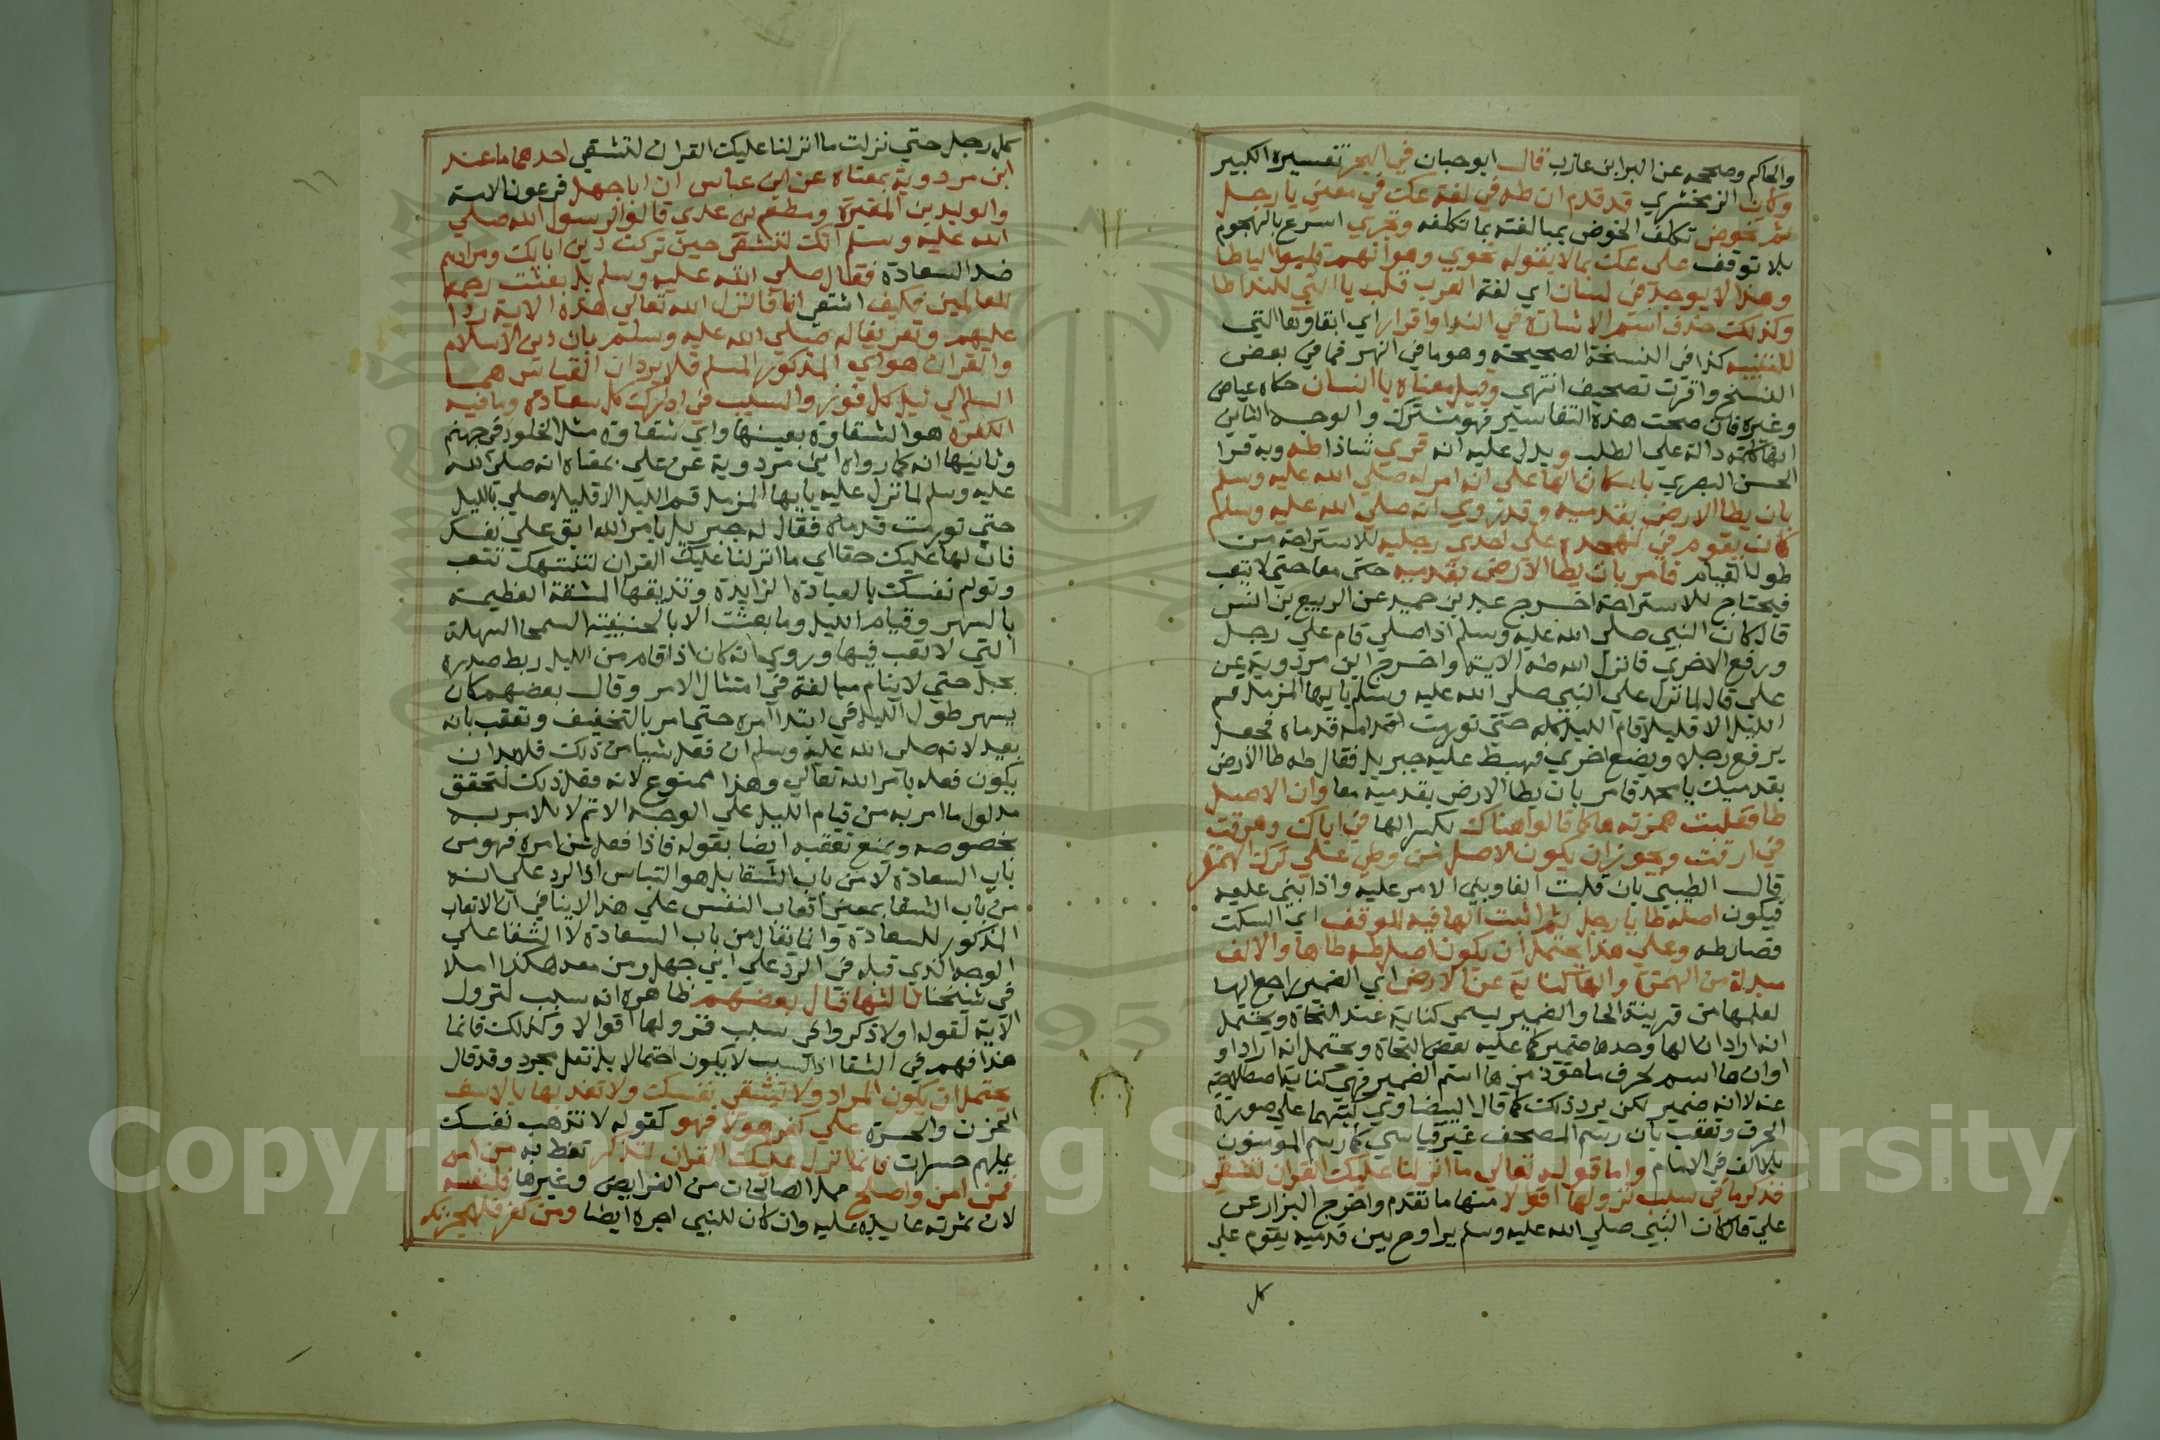 والحاكم وصححه عن البرا بن عازب قال ابو حيان في البحر تفسيره الكبير
وكان الزمخشري قد قدم ان طه في لغة عك في معني يا رجل
ثم تخوض تكلف الخوض بمبالغته بما تكلفه وتجري اسرع بالهجوم
بلا توقف علي عك بما لا يقوله نحوي وهو انهم قلبوا اليا طا
وهذا لا يوجد في لسان اي لغة العرب قلب يا التي للندا طا
وكذلك حذف اسم الاشارة في الندا واقرار اي ابقا وها التي
للتنبيه كذا في النسخة الصحيحة وهو ما في النهر فما في بعض
النسخ واقرت تصحيف انتهي وقيل معناه يا انسان حكاه عياض
وغيره فان صحت هذه التفاسير فهو مشترك والوجه الثاني
انها كلمة دالة علي الطلب ويدل عليه انه قري شاذا طه وبه قرا
الحسن البصري باسكان الها علي انه امر له صلي الله عليه وسلم
بان يطا الارض بقدميه وقد روي انه صلي الله عليه وسلم
كان يقوم في تهجده علي احدي رجليه للاستراحة من
طول القيام فامر بان يطا الارض بقدميه حتي معا حتي لا يتعب
فيحتاج للاستراحة اخرج عبد بن حميد عن الربيع بن انس
قال كان النبي صلي الله عليه وسلم اذا صلي قام علي رجل
ورفع الاخري فانزل الله طه الاية واخرج ابن مردوية عن
علي قال لما نزل علي النبي صلي الله عليه وسلم يا يها المزمل قم
الليل الا قليلا قام الليل كله حتي تورمت قدماه فجعل
يرفع رجلا ويضع اخري فهبط عليه جبريل فقال طه طا الارض
بقدميك يا محمد فامر بان يطا الارض بقدميه معا وان الاصل
طا فقلبت همزته ها كما قالوا هناك بكسر الها في اياك وهرقت
في ارقت ويجوز ان يكون الاصل من وطي علي ترك الهمزة
قال الطيبي بان قلبت الفا وبني الامر عليه واذا بني عليه
فيكون اصله طا يا رجل ثم اثبت الها فيه للوقف اي السكت
فصار طه وعلي هذا يحتمل ان يكون اصل طه طاها والالف
مبدلة من الهمزة والها كناية عن الارض اي الضمير راجع لها
لعلمها من قرينة الحا والضمير يسمي كناية عند النحاة ويحتمل
انه اراد ان لها وحدها ضمير كما عليه بعض النحاة ويحتمل انه اراد او
او ان ها اسم لحرف ماخوذ من ها اسم الضمير فهي كناية اصطلاحية
عنه لا انه ضمير لكن يرد ذلك كما قال البيضاوي كتبهما علي صورة
الحرف وتعقب بان رسم المصحف غير قياسي كما رسم المومنون
بلا الف في الامام واما قوله تعالي ما انزلنا عليك القران لتشقي
فذكروا في سبب نزولها اقوالا منها ما تقدم واخرج البزار عن
علي قال كان النبي صلي الله عليه وسلم يراوح بين قدميه يقوم علي
كل
كل رجل حتي نزلت ما انزلنا عليك القران لتشقي احدهما ما عند
ابن مردوية بمعناه عن ابن عباس ان ابا جهل فرعون الامة
والوليد بن المغيرة ومطعم بن عدي قالوا لرسول الله صلي
الله عليه وسلم انك لتشقي حين تركت دين ابايك ومرادهم
ضد السعادة فقال صلي الله عليه وسلم بل بعثت رحمة
للعالمين فكيف اشقي انا فانزل الله تعالي هذه الاية ردا
عليهم وتعريفا له صلي الله عليه وسلم بان دين الاسلام
والقران هو اي المذكور السلم فلا يرد ان القياس هما
السلم الي نيل كل فوز والسبب في ادراك كل سعادة وما فيه
الكفرة هو الشقاوة بعينها واي شقاوة مثل الخلود في جهنم
وثانيها انه كما رواه ابن مردوية عن علي بمعناه انه صلي الله
عليه وسلم لما نزل عليه يا يها المزمل قم الليل الا قليلا صلي بالليل
حتي تورمت قدماه فقال له جبريل بامر الله ابق علي نفسك
فان لها عليك حقا اي ما انزلنا عليك القران لتنهك تتعب
وتولم نفسك بالعبادة الزايدة وتذيقها المشقة العظيمة
بالسهر وقيام الليل وما بعثت الا بالحنيفية السمحا السهلة
التي لا تعب فيها وروي انه كان اذا قام من الليل ربط صدره
بحبل حتي لا ينام مبالغة في امتثال الامر وقال بعضهم كان
يسهر طول الليل في ابتدا امره حتي امر بالتخفيف وتعقب بانه
بعيد لانه صلي الله عليه وسلم ان فعل شيا من ذلك فلابد ان
يكون فعله بامر الله تعالي وهذا ممنوع لانه فعل ذلك لتحقق
مدلول ما امر به من قيام الليل علي الوجه الاتم لا للامر به
بخصوصه ويمنع تعقبه ايضا بقوله فاذا فعله عن امره فهو من
باب السعادة لا من باب الشقا بل هو التباس اذ الرد علي انه
من باب الشقا بمعني اتعاب النفس علي هذا لا ينافي ان الاتعاب
المذكور للسعادة وانما يقال من باب السعادة لا الشقا علي
الوجه الذي قبله في الرد علي ابي جهل ومن معه هكذا املا
في شيخنا ثالثها قال بعضهم ظاهره انه سبب لنزول
الاية لقوله اولا ذكروا في سبب نزولها اقوالا وكذلك فانما
هذا فهم في الشقا اذ السبب لا يكون احتمالا بل نقل مجرد وقد قال
يحتمل ان يكون المراد ولا تشقي نفسك ولا تعذبها بالاسف
الحزن والحسرة علي كفر هولا فهو كقوله لا تذهب نفسك
عليهم حسرات فانما انزل عليك القران لتذكر تعظ به من امن
فمن امن واصلح عمل الصالحات من الفرايض وغيرها فلنفسه
لان ثمرته عايدة عليه وان كان للنبي اجره ايضا ومن كفر فلا يحزنك
Copyright © King Saud University
1957